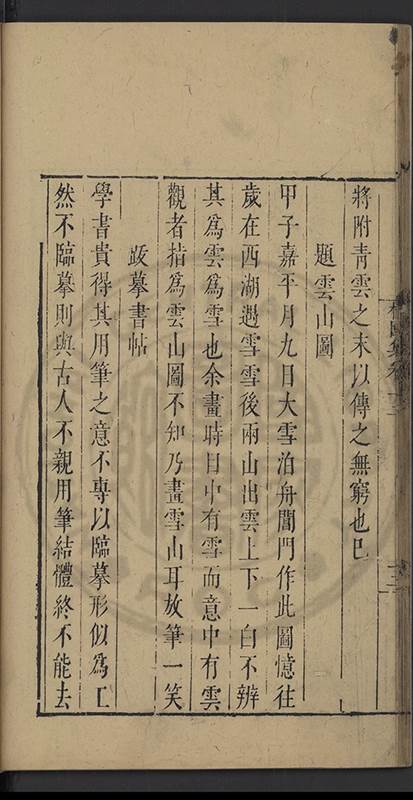 將附青雲之末以傳之無窮也已
題雲山圖
甲子嘉平月九日大雪泊舟閶門作此圖憶往
歲在西湖遇雪雪後兩山出雲上下一白不辨
其為雲為雪也余畫時目中有雪而意中有雲
觀者指為雲山圖不知乃畫雪山耳放筆一笑
跋摹書帖
學書貴得其用筆之意不專以臨摹形似為工
然不臨摹則與古人不親用筆結體終不能去